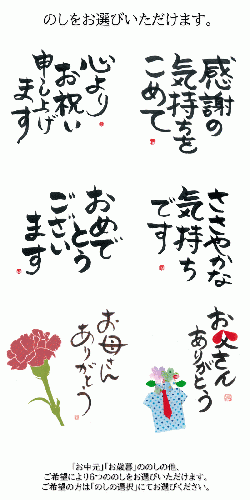 のしをお選びいただけます。
感謝の
気持ちを
こめて
心より
お祝い
申し上げ
ます
ささやかな
気持ち
です
おめで
とう
ござい
ます
お父さん
ありがとう
お母さん
ありがとう
「お中元」「お歳暮」ののしの他、
ご希望により6つののしをお選びいただけます。
ご希望の方は「のしの選択」にてお選びください。